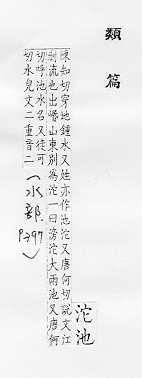 類篇
沱池
陳知切穿地鍾水又姓亦作池沱又唐何切說文江
別流也出山東別為沱一曰滂沱大雨池又唐何
切呼池水名又徒可
切水皃文二重音二(水部. P397)